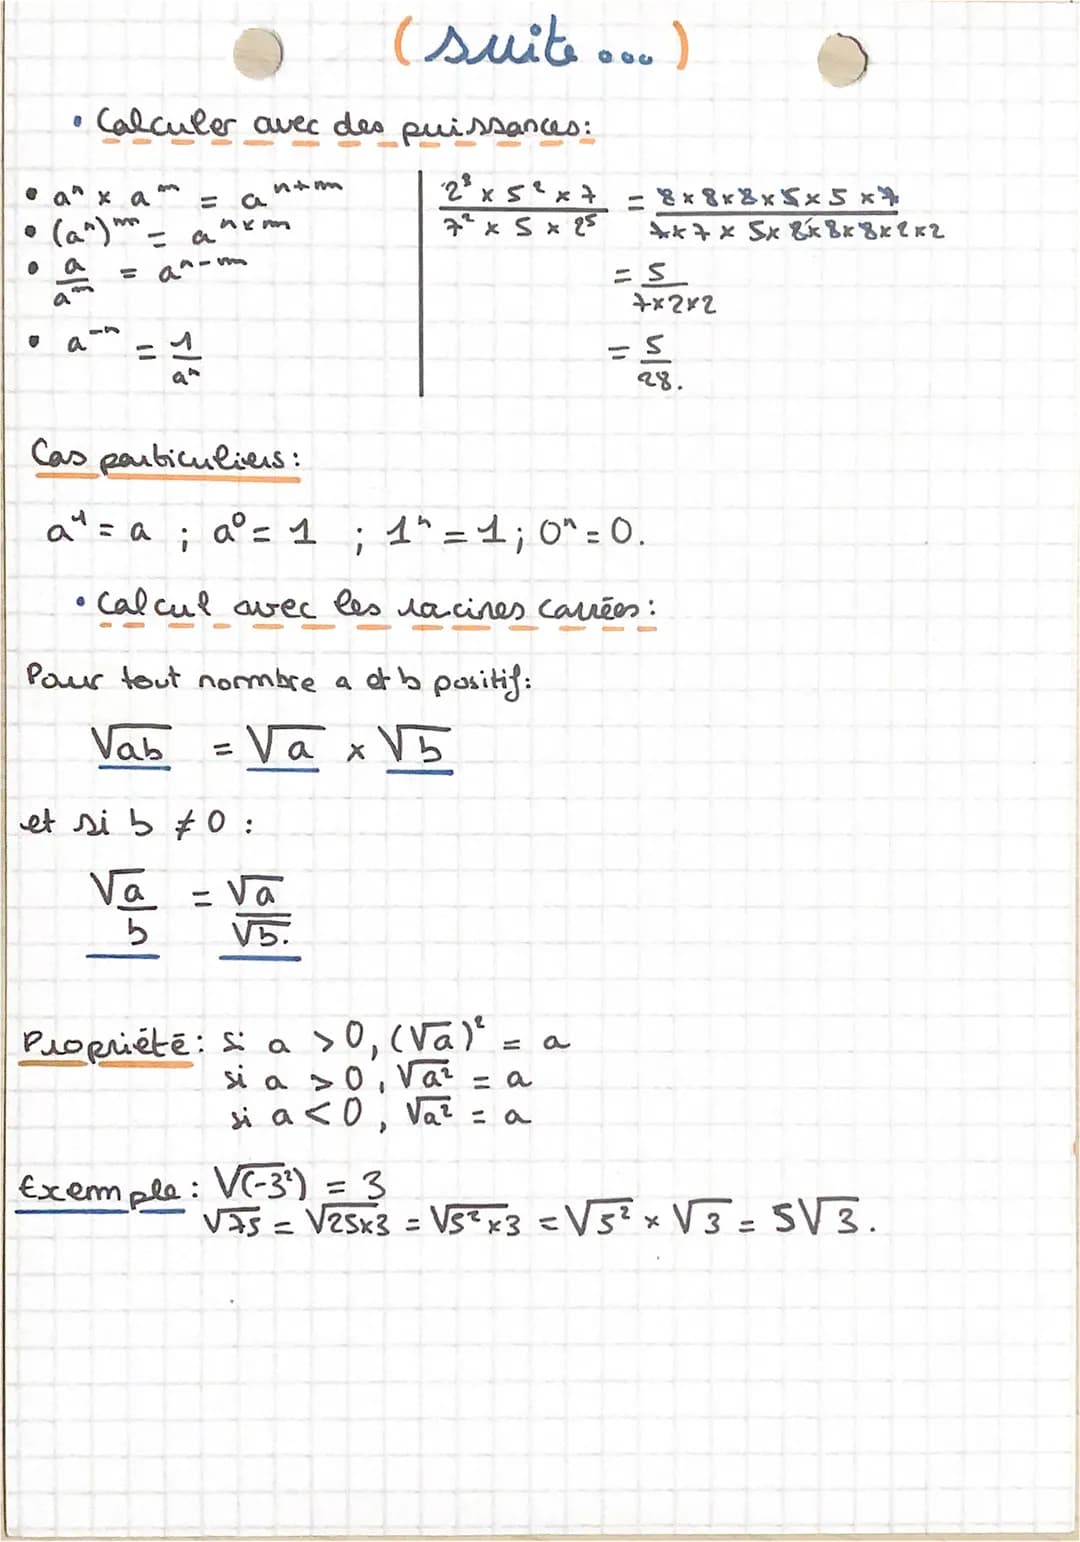 (suite...)
• Calculer avec des puissances:
• aⁿ × aᵐ = aⁿ⁺ᵐ
• (aⁿ)ᵐ = aⁿˣᵐ
• a/aᵐ = aⁿ⁻ᵐ
• a⁻ⁿ = 1/aⁿ
2³ × 5² × 7 / 7² × 5 × 2⁵ = 2×2×2×5×5×7 / 7×7×5×2×2×2×2×2
= 5 / 7×2×2
= 5/28.
Cas particuliers:
a¹ = a ; a⁰ = 1 ; 1ⁿ = 1 ; 0ⁿ = 0.
• Calcul avec les racines carrées:
Pour tout normbre a et b positif:
√ab = √a × √b
et si b ≠ 0 :
√a/b = √a/√b.
Propriété: si a > 0, (√a)² = a
si a > 0, √a² = a
si a < 0, √a² = a
Exemple: √(-3²) = 3
√75 = √25×3 = √5²×3 = √5² × √3 = 5√3.